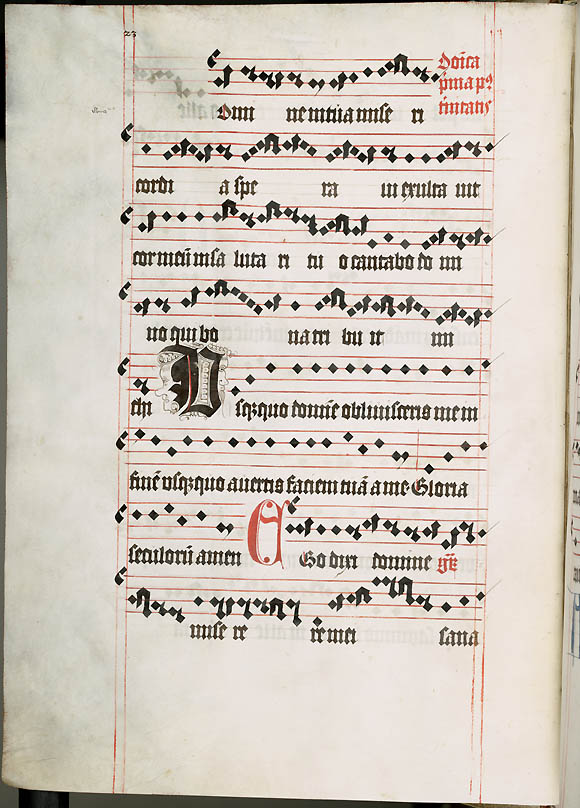 23
Domi nemitua mise ri
Doica
pma p⁹
tinitatis
cordi a spe ra ui exulta uit
cor meū in sa luta ri tu o cantabo do mi
no qui bo na tri bu it mi
chi Usqꝫquo domie obliuisceris me in
finē vsqꝫquo auertis faciem tuā a me Gloria
seculorū amen EGo dixi domine gͬ
mise re re mei sana